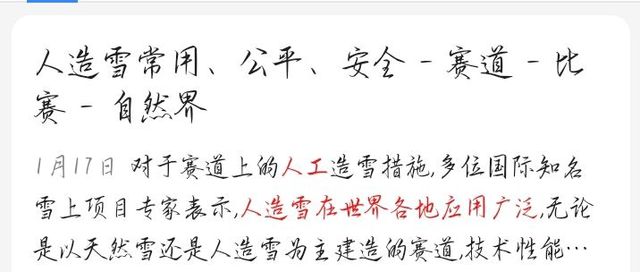 人造雪常用、公平、安全-赛道-比
赛-自然界
1月17日 对于赛道上的人工造雪措施,多位国际知名
雪上项目专家表示,人造雪在世界各地应用广泛,无论
是以天然雪还是人造雪为主建造的赛道,技术性能…